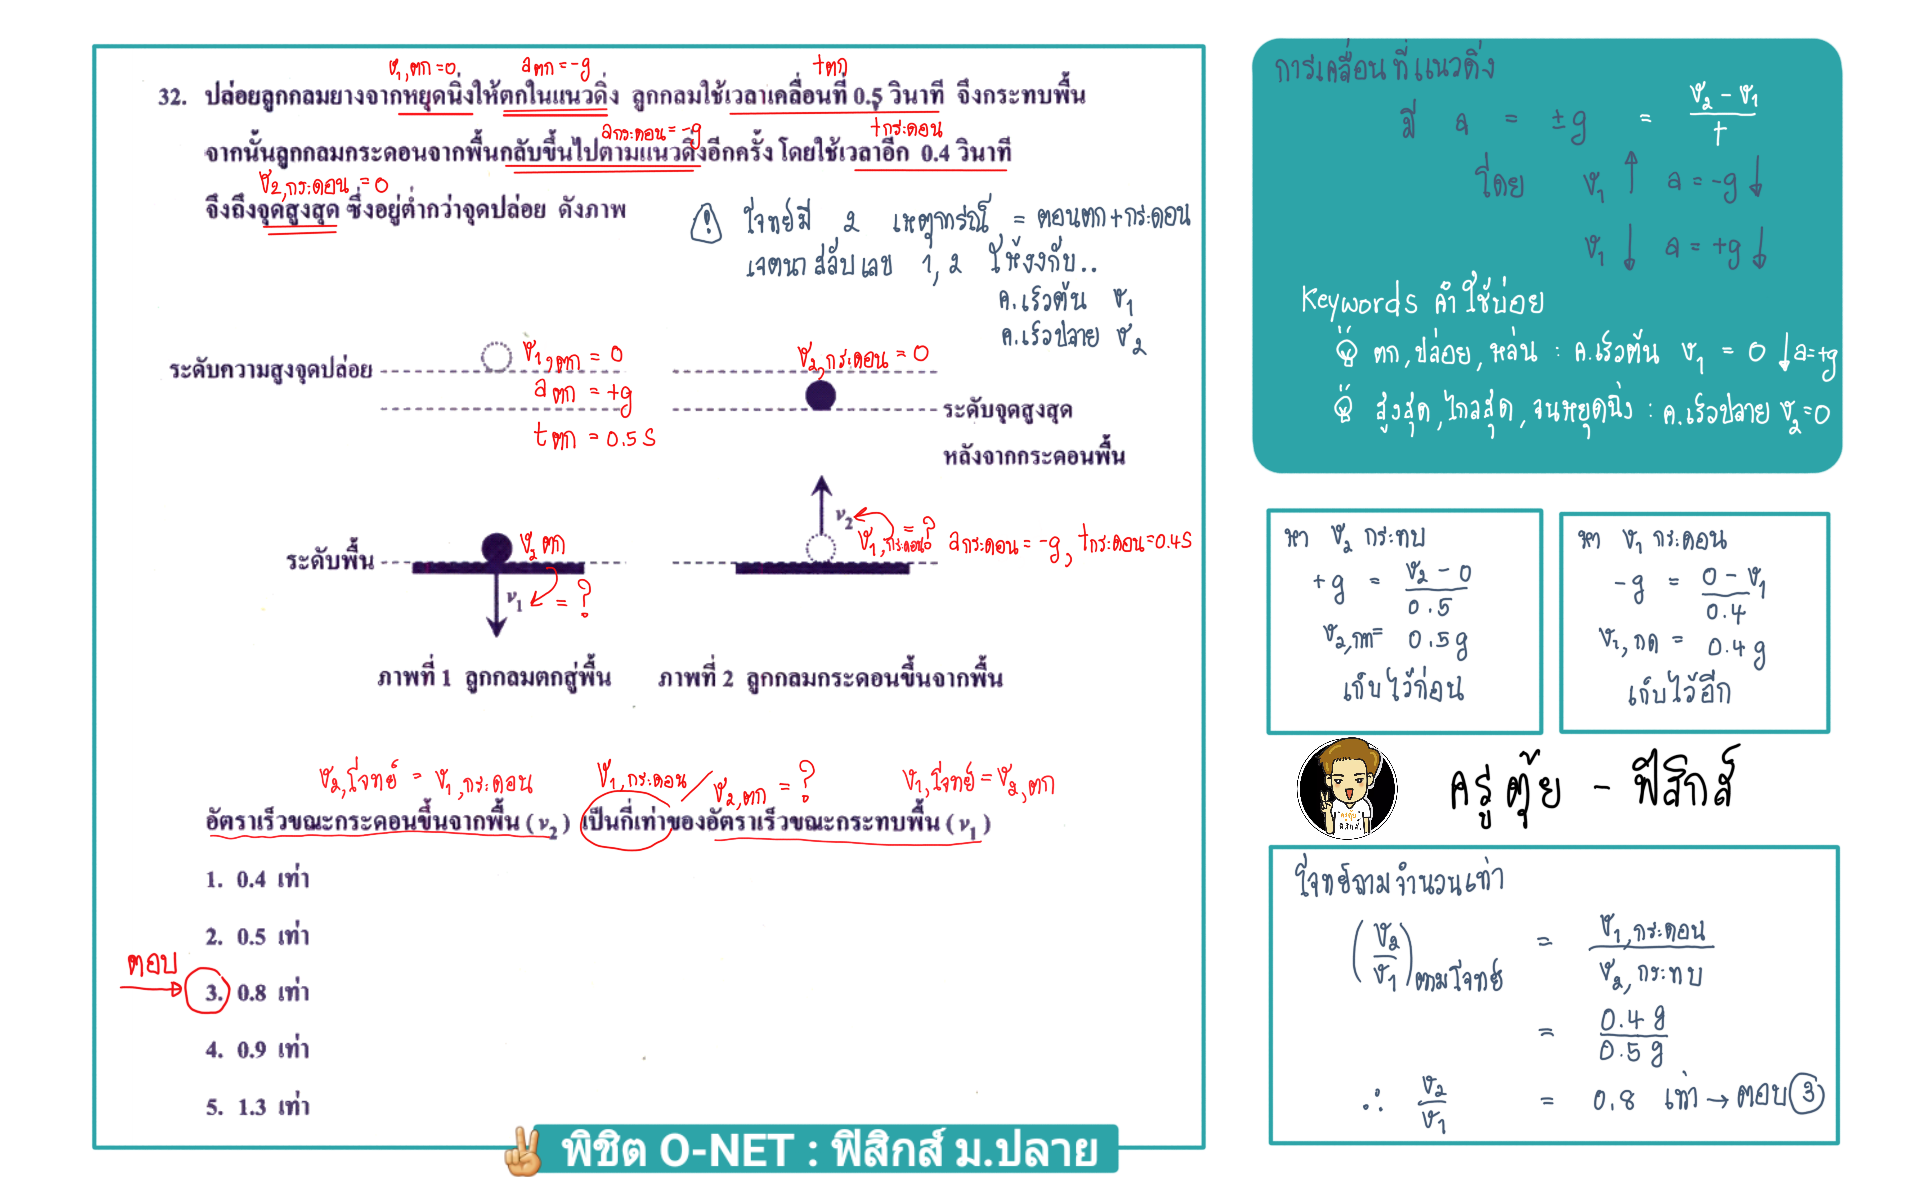 v₁,ตก=0
aตก=-g
tตก
32. ปล่อยลูกกลมยางจากหยุดนิ่งให้ตกในแนวดิ่ง ลูกกลมใช้เวลาเคลื่อนที่ 0.5 วินาที จึงกระทบพื้น
aกระดอน=-g
tกระดอน
จากนั้นลูกกลมกระดอนจากพื้นกลับขึ้นไปตามแนวดิ่งอีกครั้ง โดยใช้เวลาอีก 0.4 วินาที
v₂,กระดอน = 0
จึงถึงจุดสูงสุด ซึ่งอยู่ต่ำกว่าจุดปล่อย ดังภาพ
! โจทย์มี 2 เหตุการณ์ = ตอนตก+กระดอน
เจตนาสลับเลข 1,2 ให้งงกับ..
ค.เร็วต้น v₁
ค.เร็วปลาย v₂
ระดับความสูงจุดปล่อย
v₁,ตก = 0
aตก = +g
tตก = 0.5 s
v₂,กระดอน = 0
ระดับจุดสูงสุด
หลังจากกระดอนพื้น
ระดับพื้น
v₂ตก
v₁
= ?
v₂
v₁,กระดอน = ?
aกระดอน = -g, tกระดอน=0.4s
ภาพที่ 1 ลูกกลมตกสู่พื้น
ภาพที่ 2 ลูกกลมกระดอนขึ้นจากพื้น
v₂,โจทย์ = v₁,กระดอน
v₁,กระดอน / v₂,ตก = ?
v₁,โจทย์ = v₂,ตก
อัตราเร็วขณะกระดอนขึ้นจากพื้น (v₂) เป็นกี่เท่าของอัตราเร็วขณะกระทบพื้น (v₁)
1. 0.4 เท่า
2. 0.5 เท่า
ตอบ
3. 0.8 เท่า
4. 0.9 เท่า
5. 1.3 เท่า
พิชิต O-NET : ฟิสิกส์ ม.ปลาย
การเคลื่อนที่แนวดิ่ง
มี a = ±g = (v₂ - v₁)/t
โดย v₁ ↑ a = -g ↓
v₁ ↓ a = +g ↓
Keywords คำใช้บ่อย
ตก, ปล่อย, หล่น : ค.เร็วต้น v₁ = 0 ↓a=+g
สูงสุด, ไกลสุด, จนหยุดนิ่ง : ค.เร็วปลาย v₂=0
หา v₂ กระทบ
+g = (v₂ - 0)/0.5
v₂,กท = 0.5g
เก็บไว้ก่อน
หา v₁ กระดอน
-g = (0 - v₁)/0.4
v₁,กด = 0.4g
เก็บไว้อีก
ครูตุ้ย - ฟิสิกส์
โจทย์ถามจำนวนเท่า
(v₂/v₁)ตามโจทย์ = v₁,กระดอน/v₂,กระทบ
= 0.4g/0.5g
∴ v₂/v₁ = 0.8 เท่า → ตอบ 3